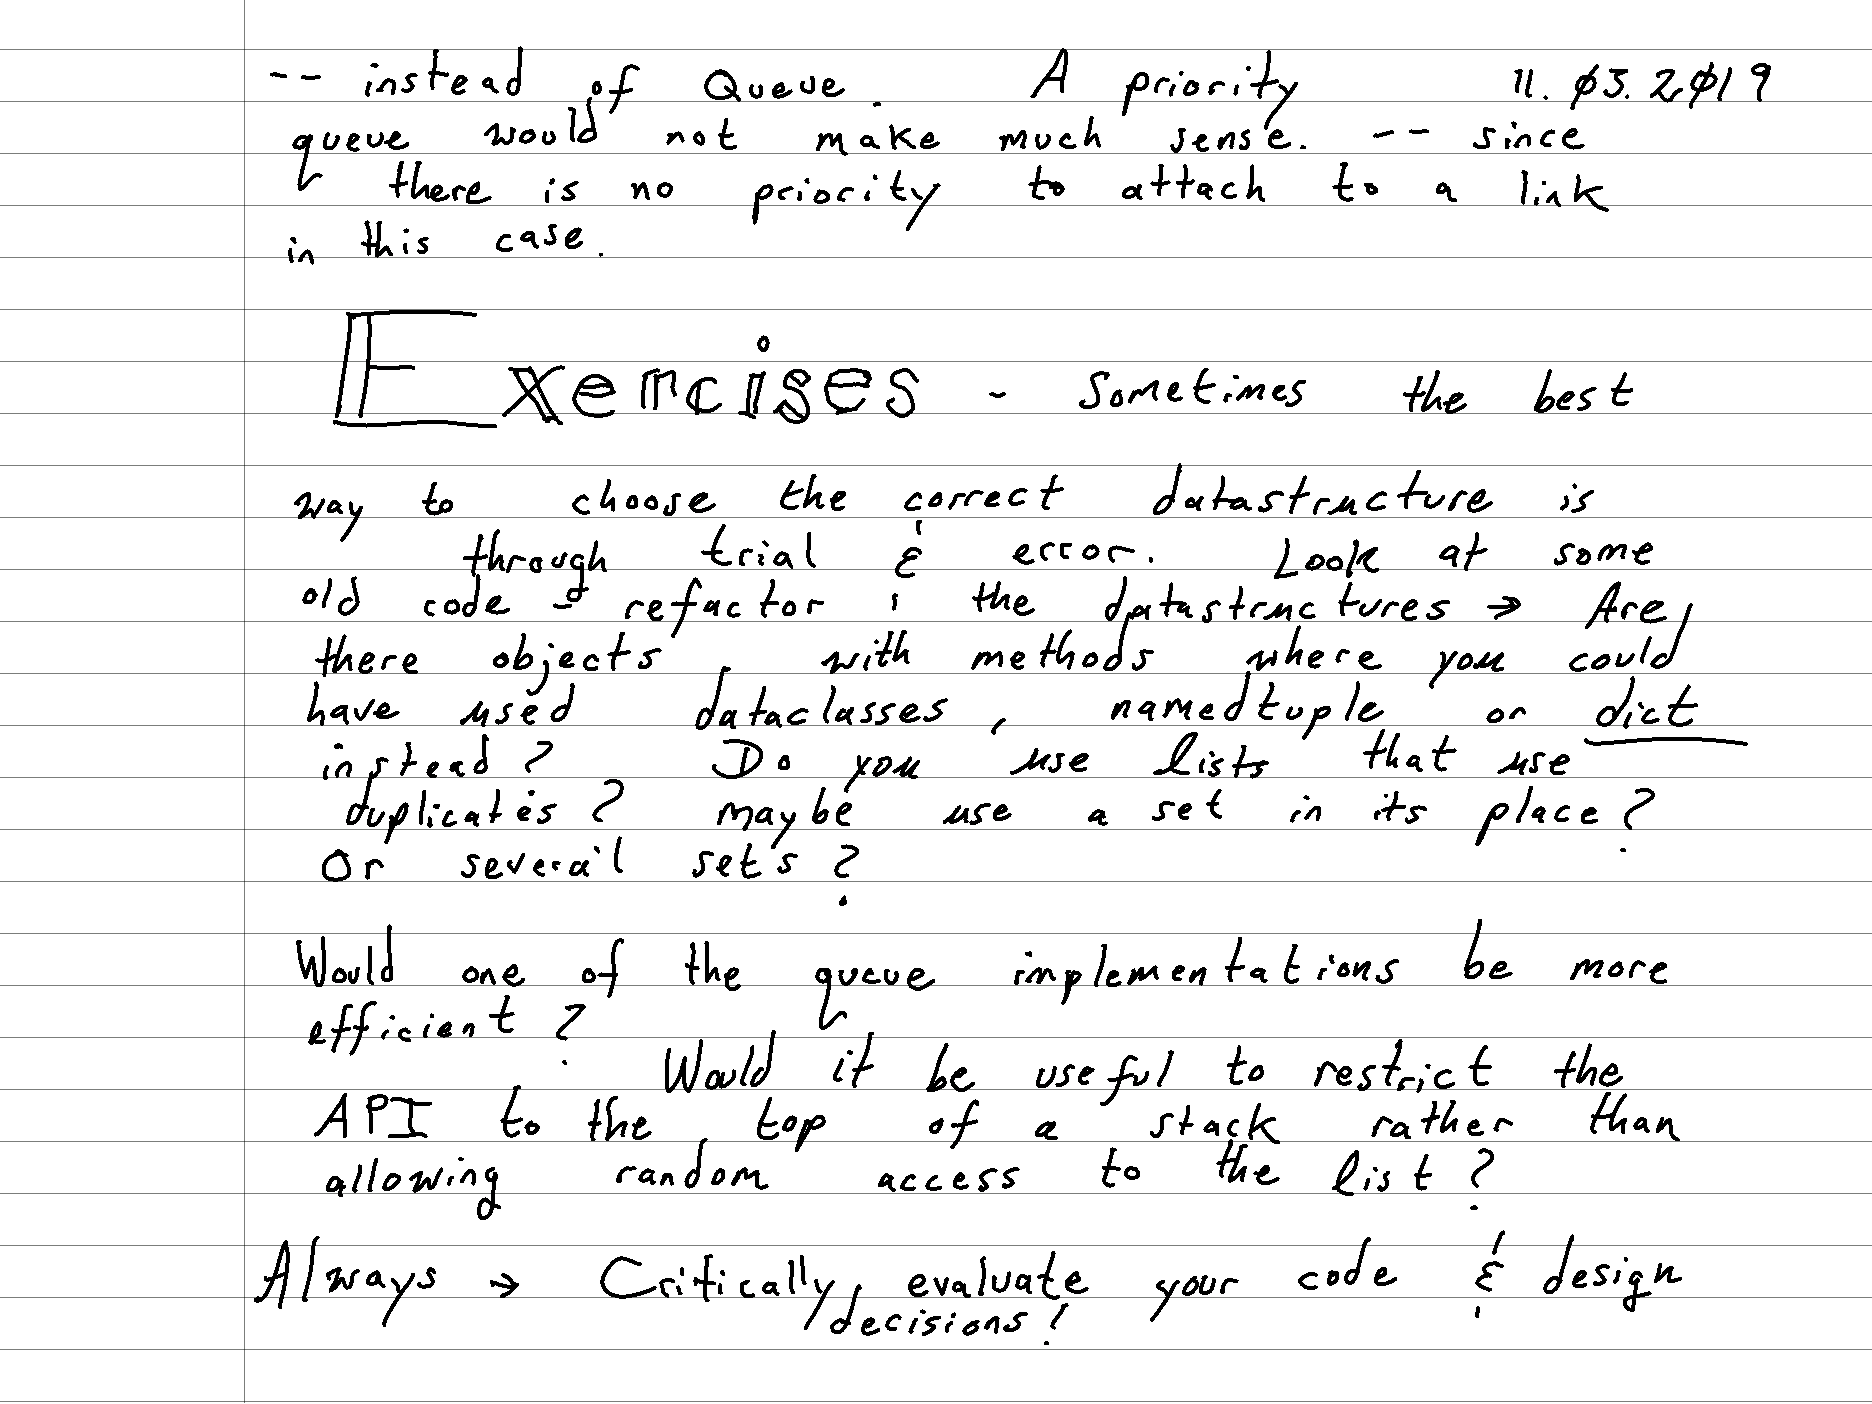 -- instead of Queue. A priority 11.03.2019
queue would not make much sense. -- since
there is no priority to attach to a link
in this case.
Exercises - Sometimes the best
way to choose the correct datastructure is
through trial & error. Look at some
old code - refactor the datastructures → Are
there objects with methods where you could
have used dataclasses, namedtuple or dict
instead? Do you use lists that use
duplicates? maybe use a set in its place?
Or several sets?
Would one of the queue implementations be more
efficient?
Would it be useful to restrict the
API to the top of a stack rather than
allowing random access to the list?
Always → Critically evaluate your code & design
decisions!